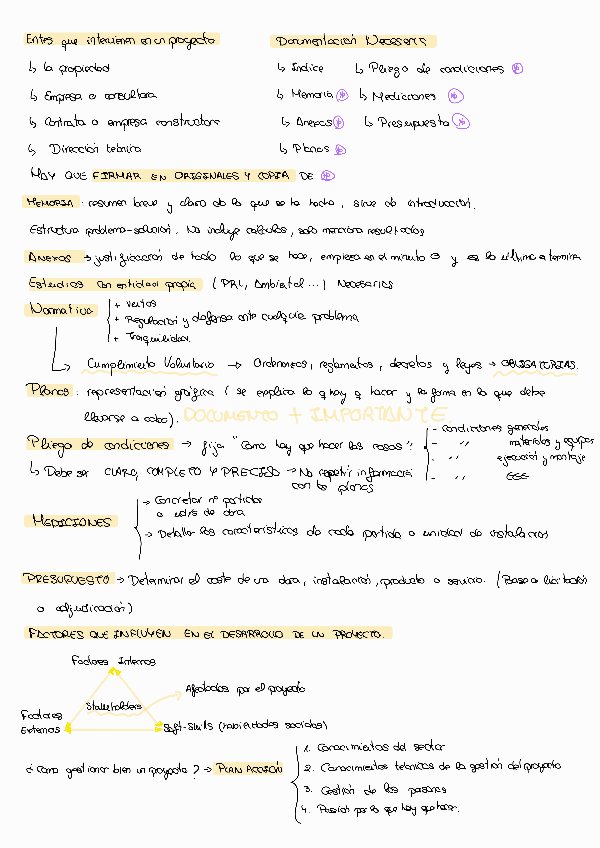 Entes que intervienen en un proyecto
Documentación Necesaria
↳ La propiedad
↳ Índice ↳ Pliego de condiciones *
↳ Empresa o consultora
↳ Memoria * ↳ Mediciones *
↳ Contrata o empresa constructora
↳ Anexos * ↳ Presupuesto *
↳ Dirección técnica
↳ Planos *
HAY QUE FIRMAR EN ORIGINALES Y COPIA DE *
MEMORIA: resumen breve y claro de lo que se ha hecho, sirve de introducción.
Estructura problema-solución. No incluye cálculos, solo menciona resultados
ANEXOS → justificación de todo lo que se hace, empieza en el minuto 0 y es lo último a termina
Estudios con entidad propia (PRL, Ambiental...) Necesarios
Normativa
+ Ventas
+ Regulación y defensa ante cualquier problema
+ Tranquilidad.
Cumplimiento Voluntario → Ordenanzas, reglamentos, decretos y leyes → OBLIGATORIAS.
Planos: representación gráfica (se explica lo q hay q hacer y la forma en lo que debe
llevarse a cabo). DOCUMENTO + IMPORTANTE
Pliego de condiciones → fija "Como hay que hacer las cosas":
- Condiciones generales
- " materiales y equipos
- " ejecución y montaje
- " ESS
↳ Debe ser CLARO, COMPLETO Y PRECISO → No repetir información
con los planos
MEDICIONES
→ Concretar nº partidas
o uds de obra
→ Detallar las características de cada partida o unidad de instalación
PRESUPUESTO → Determinar el coste de una obra, instalación, producto o servicio. (Base a licitación
o adjudicación)
FACTORES QUE INFLUYEN EN EL DESARROLLO DE UN PROYECTO.
Factores Internos
Stakeholders
Afectados por el proyecto
Factores
Externos
Soft-Skills (habilidades sociales)
¿Como gestionar bien un proyecto? → PLAN ACCIÓN
1. Conocimientos del sector
2. Conocimientos técnicos de la gestión del proyecto
3. Gestión de las personas
4. Pasión por lo que hay que hacer.